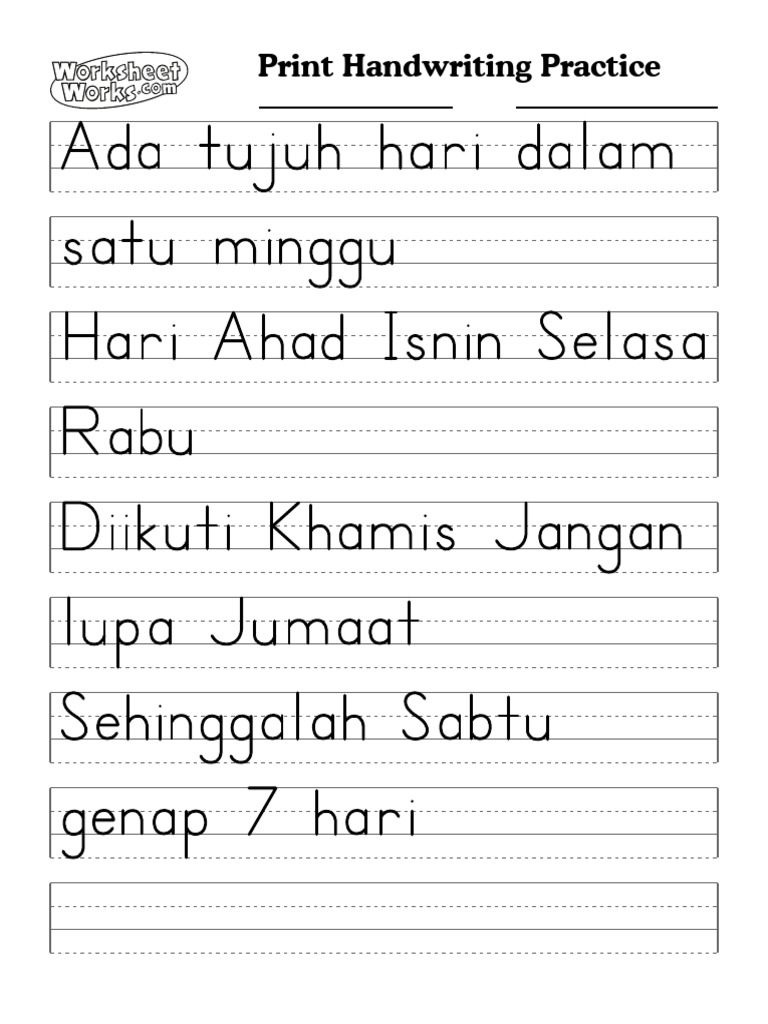 Worksheet
Works.com
Print Handwriting Practice
Ada tujuh hari dalam
satu minggu
Hari Ahad Isnin Selasa
Rabu
Diikuti Khamis Jangan
lupa Jumaat
Sehinggalah Sabtu
genap 7 hari